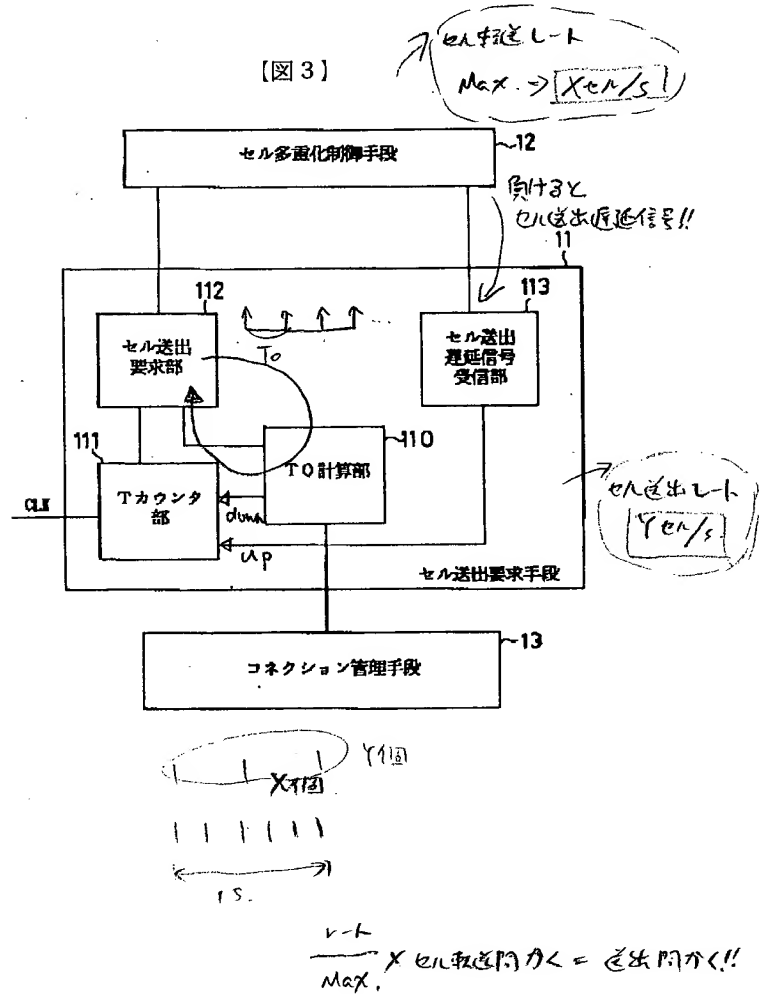 【図3】
セル転送レート
Max. ⇒ Xセル/s
セル多重化制御手段
12
負けると
セル送出遅延信号!!
11
112
113
セル送出
要求部
To
セル送出
遅延信号
受信部
111
110
Tカウンタ
部
T0計算部
CLK
down
up
セル送出レート
Yセル/s
セル送出要求手段
コネクション管理手段
13
Y個
X個
1s.
レート
Max.
× セル転送間かく = 送出間かく!!